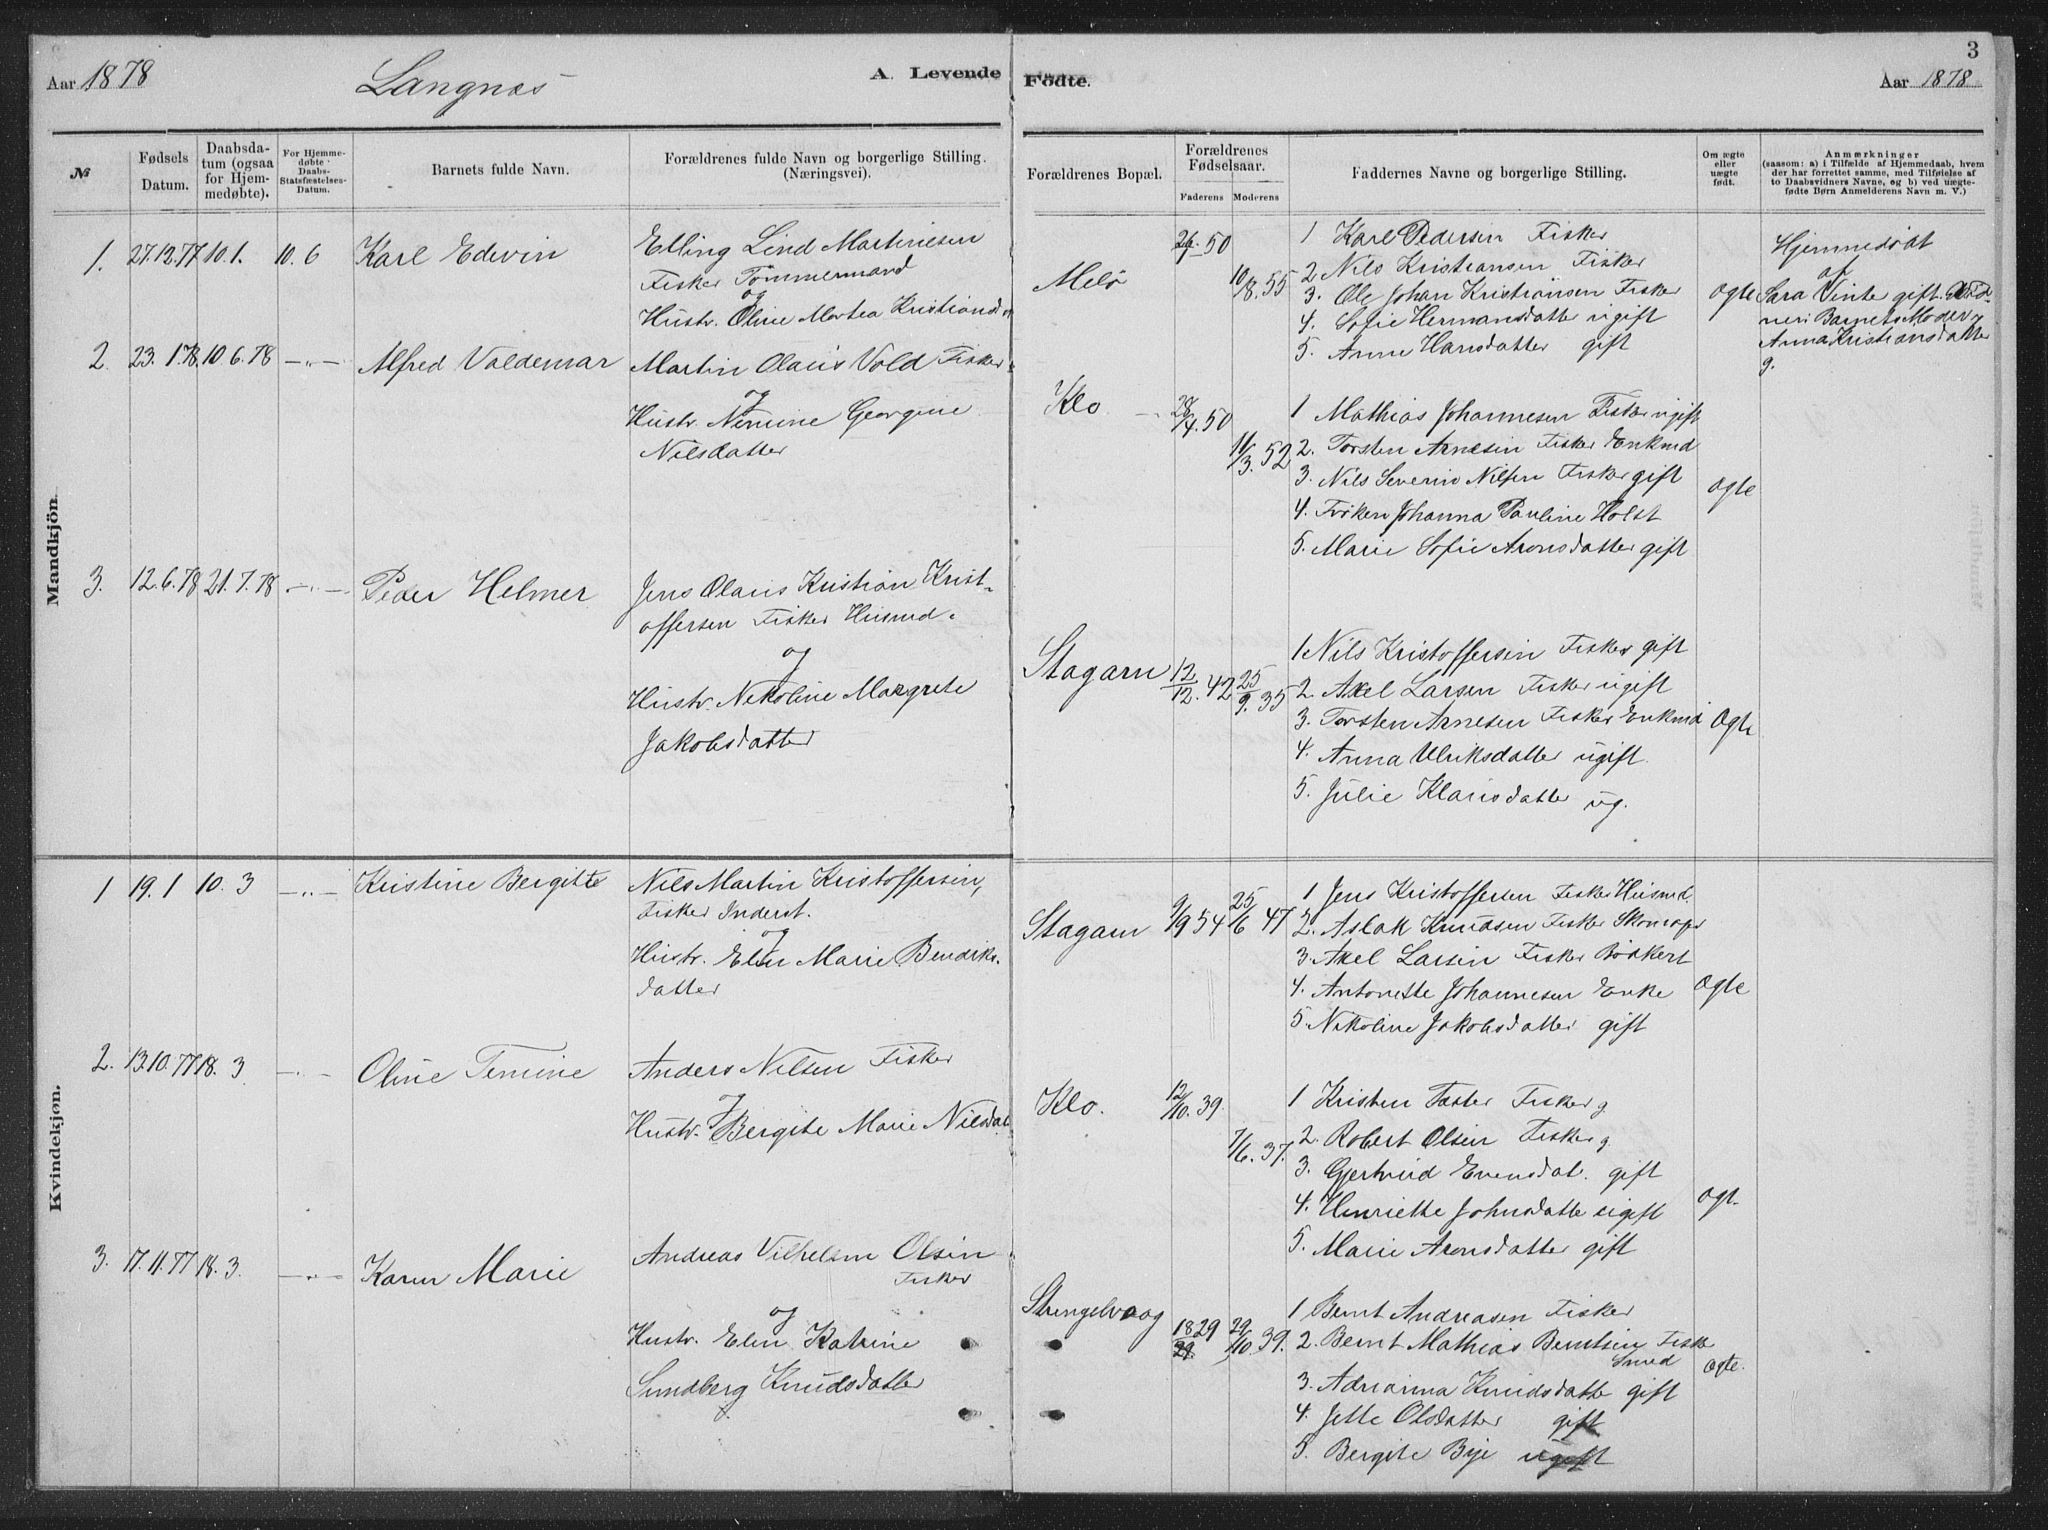 Aar 1878
Langnæs
A. Levende
№
Fødsels Datum.
Daabsda-
tum (ogsaa
for Hjem-
medøbte).
For Hjemme-
døbte
Daabs-
Statsfæstelses-
Datum.
Barnets fulde Navn.
Forældrenes fulde Navn og borgerlige Stilling.
(Næringsvei).
Mandkjön.
1. 27.12.77 10.1. 10.6 Karl Edevin
Elling Lind Martinesen
Fisker Tømmermand
og
Hustr. Oline Martea Kristiansd
2. 23.1.78. 10 6.78 —„— Alfred Valdemar
Martin Olaus Vold Fisker
og
Hustr. Nemine Georgine
Nilsdatter
3. 12.6.78 21.7.78 —„— Peder Helmer
Jens Olaus Kristian Krist-
offersen Fisker Husmd.
og
Hustr. Nikoline Margrete
Jakobsdatter
Kvindekjøn.
1 19.1 10.3 —„— Kristine Bergitte
Nils Martin Kristoffersen,
Fisker Inderst.
og
Hustr. Elen Marie Bendiks.
datter
2. 13.10.77 18.3 —„— Oline Temine
Anders Nilsen Fisker
og
Hustr. Bergite Marie Nilsdat
3. 17.11.77 18.3. —„— Karen Marie
Andreas Vilhelm Olsen
Fisker
og
Hustr. Elen Katrine
Sundberg Knudsdatter
Fødte.
3
Aar 1878
Forældrenes Bopæl.
Forældrenes
Fødselsaar.
Faderens Moderens
Faddernes Navne og borgerlige Stilling.
Om ægte
eller
uægte
født.
Anmærkninger
(saasom: a) i Tilfælde af Hjemmedaab, hvem
der har forrettet samme, med Tilføielse af
to Daabsvidners Navne, og b) ved uægte-
fødte Børn Anmelderens Navn m. V.)
Melø
26/7 50
10/8. 55
1 Karl Pedersen Fisker
2. Nils Kristiansen Fisker
3. Ole Johan Kristiansen Fisker
4. Sofie Hermansdatter ugift
5. Anne Hansdatter gift
Ogte
Hjemmedøbt
af
Sara Vinter gift.
ner: Barnets Moder
Anna Kristiansdatter
g.
Klo
28/4. 50
11/3. 52
1 Mathias Johannesen Fisker ugift
2. Torsten Arnesen Fisker Enkmd
3. Nils Severin Nilsen Fisker gift
4. Frøken Johanna Pauline Holst
5. Marie Sofie Aronsdatter gift
Ogte
Stagarn
12/12. 42
25/9. 35
1 Nils Kristoffersen Fisker gift
2. Axel Larsen Fisker ugift
3. Torsten Arnesen Fisker Enkmd
4. Anna Ulriksdatter ugift.
5. Julie Klausdatter ug.
Ogte
Stagarn
9/9 54
25/6 47
1 Jens Kristoffersen Fisker Husmd.
2. Aslak Knudsen Fisker Skomager
3. Axel Larsen Fisker Bødkert
4. Antonette Johannesen Enke
5. Nikoline Jakobsdatter gift
Ogte
Klo.
12/10. 39.
7/6. 37.
1 Kristen Taster Fisker g
2. Robert Olsen Fisker g.
3. Gjertrud Evensdat. gift
4. Henriette Johnsdatte ugift
5. Marie Aronsdatter gift
Ogt.
Strengelvaag
1829
29/10. 39.
1 Bernt Andreasen Fisker
2. Bernt Mathias Berntsen Fiske
Smed
3. Adrianna Knudsdatte gift
4. Jette Olsdatter gift
5. Bergite Bye ugift
Ogte.